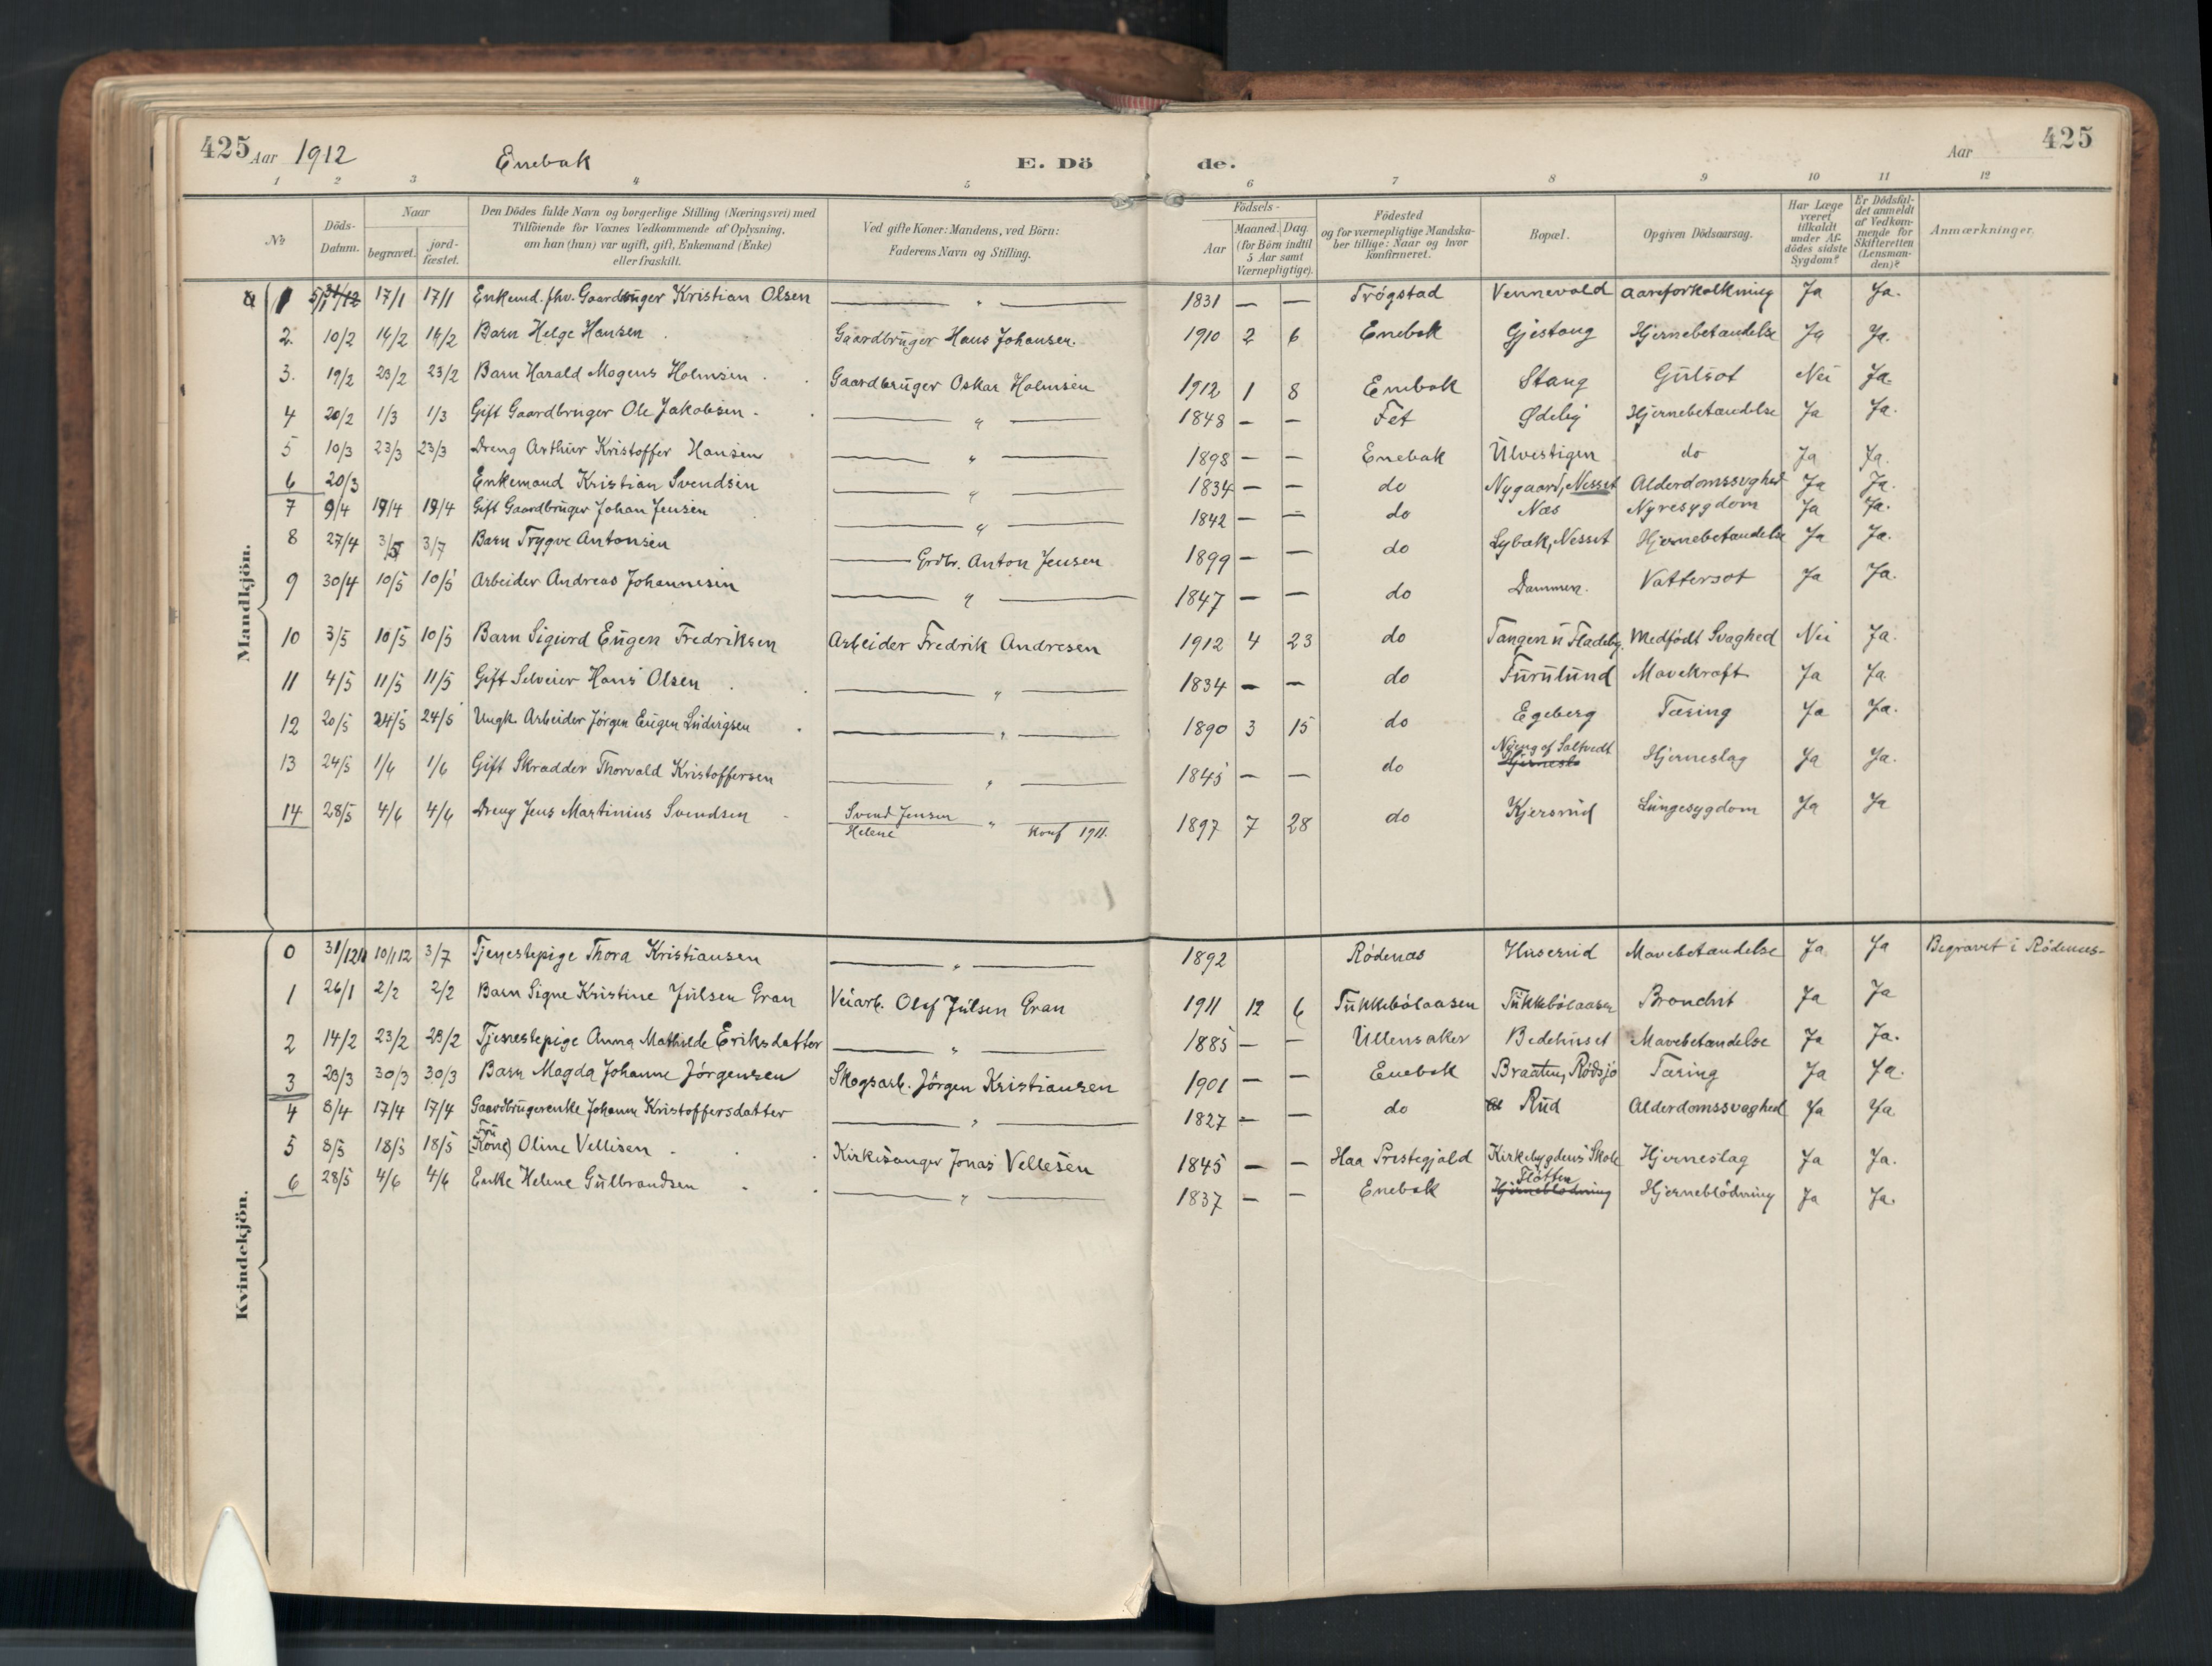 425 Aar 1912 Enebak E. Dö de. Aar 425
1 2 3 4 5 6 7 8 9 10 11 12
№
Döds-Datum.
Naar
begravet.
jord-fæstet.
Den Dödes fulde Navn og borgerlige Stilling (Næringsvei) med
Tilföiende for Voxnes Vedkommende af Oplysning,
om han (hun) var ugift, gift, Enkemand (Enke)
eller fraskilt.
Ved gifte Koner: Mandens, ved Börn:
Faderens Navn og Stilling.
Födsels-
Aar
Maaned. Dag
(for Börn indtil
5 Aar samt
Værnepligtige).
Födested
og for værnepligtige Mandska-
ber tillige: Naar og hvor
konfirmeret.
Bopæl.
Opgiven Dödsaarsag.
Har Læge
været
tilkaldt
under Af-
dödes sidste
Sygdom?
Er Dödsfal-
det anmeldt
af Vedkom-
mende for
Skifteretten
(Lensman-
den)?
Anmærkninger.
Mandkjön.
1 5/1 31/12 17/1 17/1 Enkemd. fhv. Gaardbruger Kristian Olsen — " — 1831 — — Trøgstad Vennevold Aareforkalkning Ja Ja.
2. 10/2 14/2 14/2 Barn Helge Hansen Gaardbruger Hans Johansen. 1910 2 6 Enebak Gjestang Hjernebetændelse Ja Ja.
3. 19/2 23/2 23/2 Barn Harald Mogens Holmsen Gaardbruger Oskar Holmsen 1912 1 8 Enebak Stang Gulsot Nei Ja.
4 20/2 1/3 1/3 Gift Gaardbruger Ole Jakobsen — " — 1848 — — Fet Ødeby Hjernebetændelse Ja Ja.
5 10/3 23/3 23/3 Dreng Arthur Kristoffer Hansen — " — 1898 — — Enebak Ulvestigen do Ja Ja.
6 20/3 Enkemand Kristian Svendsen — " — 1834 — — do Nygaard, Nesset Alderdomssvaghed Ja Ja.
7 9/4 19/4 19/4 Gift Gaardbruger Johan Jensen — " — 1842 — — do Næs Nyresygdom Ja Ja.
8 27/4 3/5 3/7 Barn Trygve Antonsen — Grdbr. Anton Jensen 1899 — — do Lybæk, Nesset Hjernebetændelse Ja Ja.
9 30/4 10/5 10/5 Arbeider Andreas Johannesen — " — 1847 — — do Dammen. Vattersot Ja Ja.
10 3/5 10/5 10/5 Barn Sigurd Eugen Fredriksen Arbeider Fredrik Andresen 1912 4 23 do Tangen u Fladeby. Medfødt Svaghed Nei Ja.
11 4/5 11/5 11/5 Gift Selveier Hans Olsen — " — 1834 — — do Furulund Mavekræft Ja Ja
12 20/5 24/5 24/5 Ungk. Arbeider Jørgen Eugen Ludvigsen — " — 1890 3 15 do Egeberg Tæring Ja Ja.
13 24/5 1/6 1/6 Gift Skrædder Thorvald Kristoffersen — " — 1845 — — do Nøeng af Saltvedt Hjerneslag Ja Ja.
14 28/5 4/6 4/6 Dreng Jens Martinius Svendsen Svend Jensen Helene " Konf 1911. 1897 7 28 do Kjersrud Lungesygdom Ja Ja
Kvindekjön.
0 31/1211 10/112 3/7 Tjenestepige Thora Kristiansen — " — 1892 Rødenæs Huserud Mavebetændelse Ja Ja Begravet i Rødenæs-
1 26/1 2/2 2/2 Barn Signe Kristine Julsen Gran Veiarb. Olaf Julsen Gran 1911 12 6 Tukkebølaasen Tukkebølaasen Bronchit Ja Ja
2 14/2 23/2 23/2 Tjenestepige Anna Mathilde Eriksdatter — " — 1885 — — Ullensaker Bedehuset Mavebetændelse Ja Ja.
3 23/3 30/3 30/3 Barn Magda Johanne Jørgensen Skogsarb. Jørgen Kristiansen 1901 — — Enebak Braaten, Rødsjø Tæring Ja Ja.
4 8/4 17/4 17/4 Gaardbrugerenke Johanne Kristoffersdatter — " — 1827 — — do Rud Alderdomssvaghed Ja Ja
5 8/5 18/5 18/5 Fru (Kone) Oline Vellesen Kirkesanger Jonas Vellesen 1845 — — Haa Prestegjæld Kirkebygdens Skole Hjerneslag Ja Ja.
6 28/5 4/6 4/6 Enke Helene Gulbrandsen — " — 1837 — — Enebak Fløtten Hjerneblødning Hjerneblødning Ja Ja.